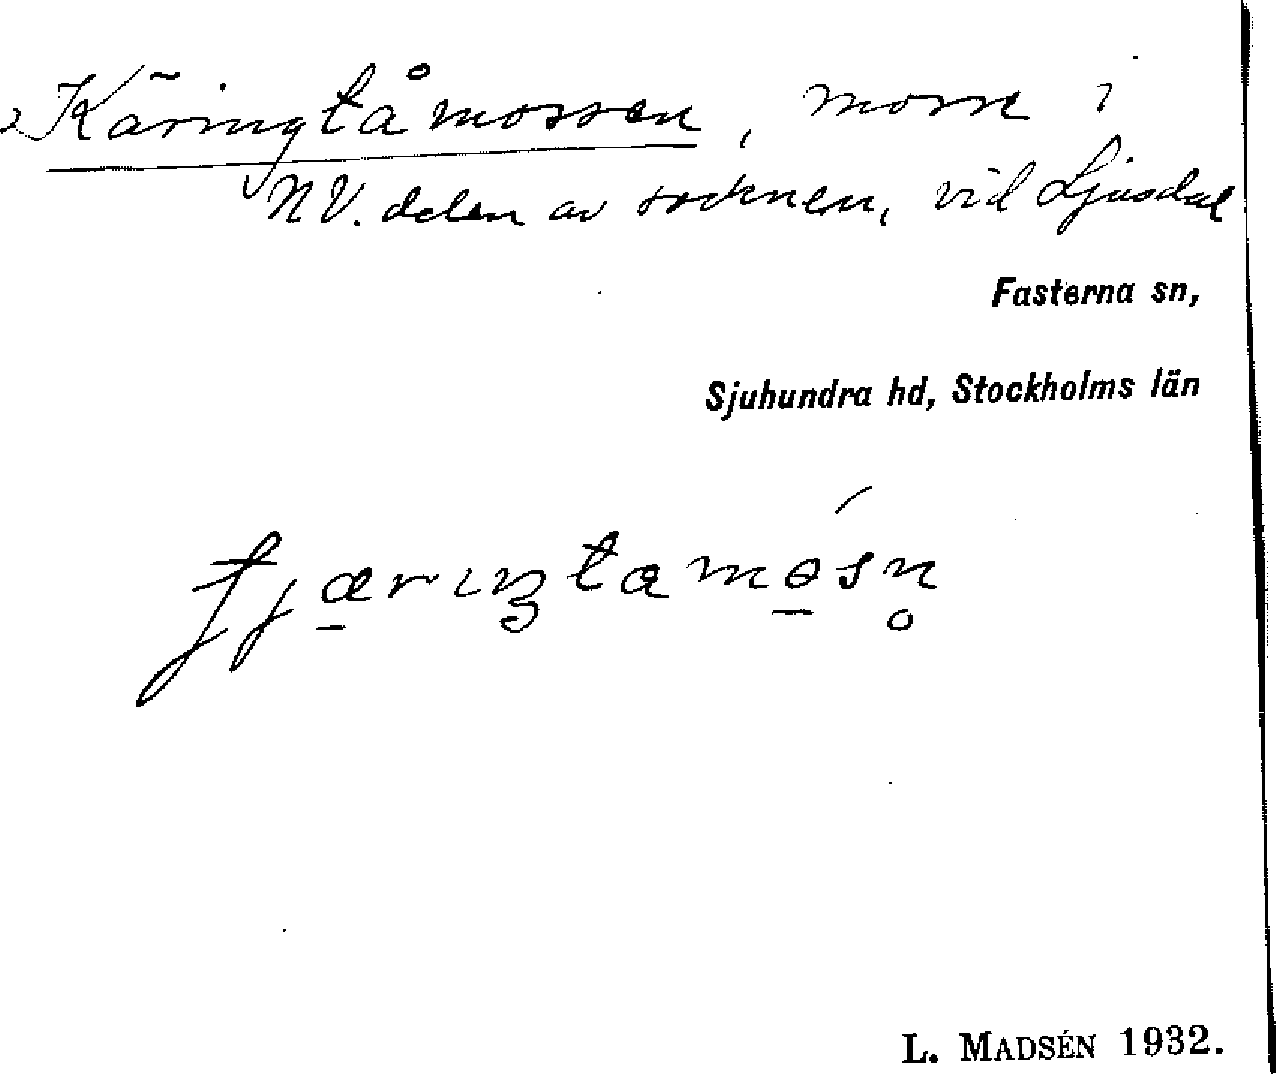 Käringtåmossen, mosse i
NV. delen av socknen, vid Ljusdal
Fasterna sn,
Sjuhundra hd, Stockholms län
L. MADSÉN 1932.